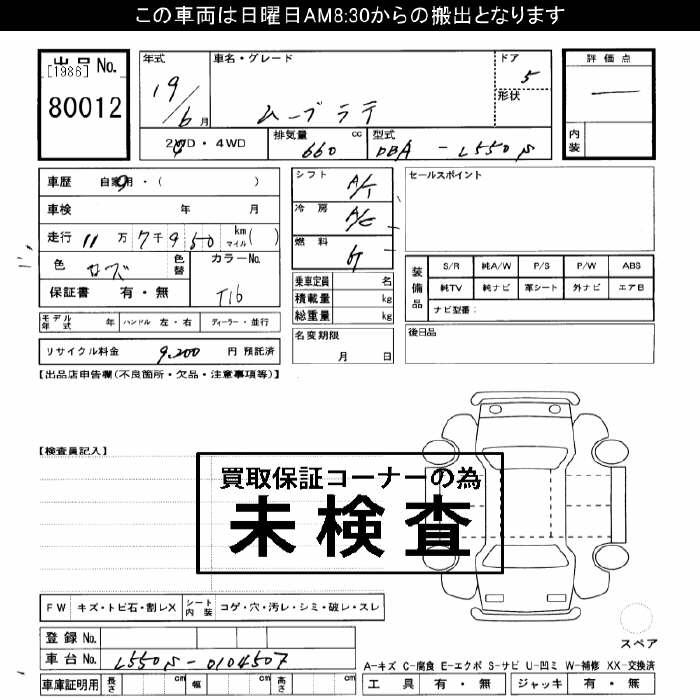 この車両は日曜日AM8:30からの搬出となります
出品 No.
[1986]
80012
年式
19/6 月
車名・グレード
ムーブラテ
ドア
5
形状
評価点
—
内装
2WD・4WD
排気量 cc
660
型式
DBA - L550S
車歴 自家用・( )
車検 年 月
走行 11万 7千 950 km マイル( )
色
色替
カラーNo.
T16
保証書 有・無
モデル年式 年 ハンドル 左・右 ディーラー・並行
リサイクル料金 9,200 円 預託済
シフト
A/T
冷房
A/C
燃料
乗車定員 名
積載量 kg
総重量 kg
名変期限
月 日
セールスポイント
装備品
S/R 純A/W P/S P/W ABS
純TV 純ナビ 革シート 外ナビ エアB
ナビ型番:
後日品
【出品店申告欄(不良箇所・欠品・注意事項等)】
【検査員記入】
買取保証コーナーの為
未検査
FW キズ・トビ石・割レX シート内装 コゲ・穴・汚レ・シミ・破レ・スレ
登録 No.
車台 No. L550S-0104507
車庫証明用 長さ cm 幅 cm 高さ cm
スペア
A-キズ C-腐食 E-エクボ S-サビ U-凹ミ W-補修 XX-交換済
工具 有・無 ジャッキ 有・無